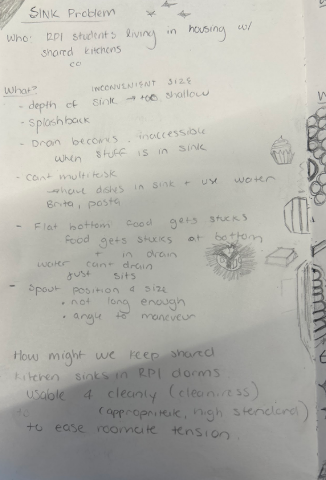 SINK Problem
Who: RPI students living in housing w/
shared kitchens
co
What? INCONVENIENT SIZE
- depth of sink → too shallow
- splashback
- Drain becomes inaccessible
when stuff is in sink
- Cant multitask
→ have dishes in sink + use water
Brita, pasta
- Flat bottom food gets stucks
food gets stucks at bottom
+ in drain
water cant drain
just sits
- Spout position & size
• not long enough
• angle to maneuver
How might we keep shared
kitchen sinks in RPI dorms
usable & cleanly (cleanliness)
to (appropriate, high standard)
to ease roomate tension